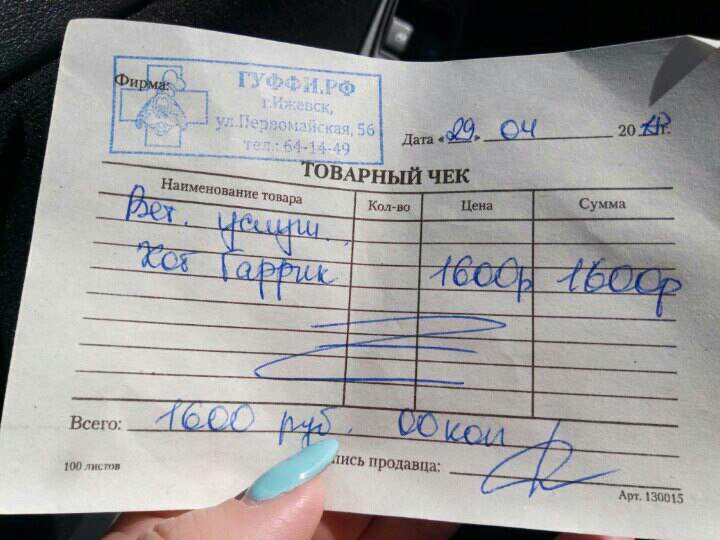 Фирма:
ГУФФИ.РФ
г.Ижевск,
ул.Первомайская, 56
тел.: 64-14-49
Дата «29» 04 20 г.
ТОВАРНЫЙ ЧЕК
Наименование товара Кол-во Цена Сумма
Вет. услуги..
Кот Гаррик 1600р 1600р
Всего: 1600 руб. 00 коп
пись продавца:
100 листов
Арт. 130015